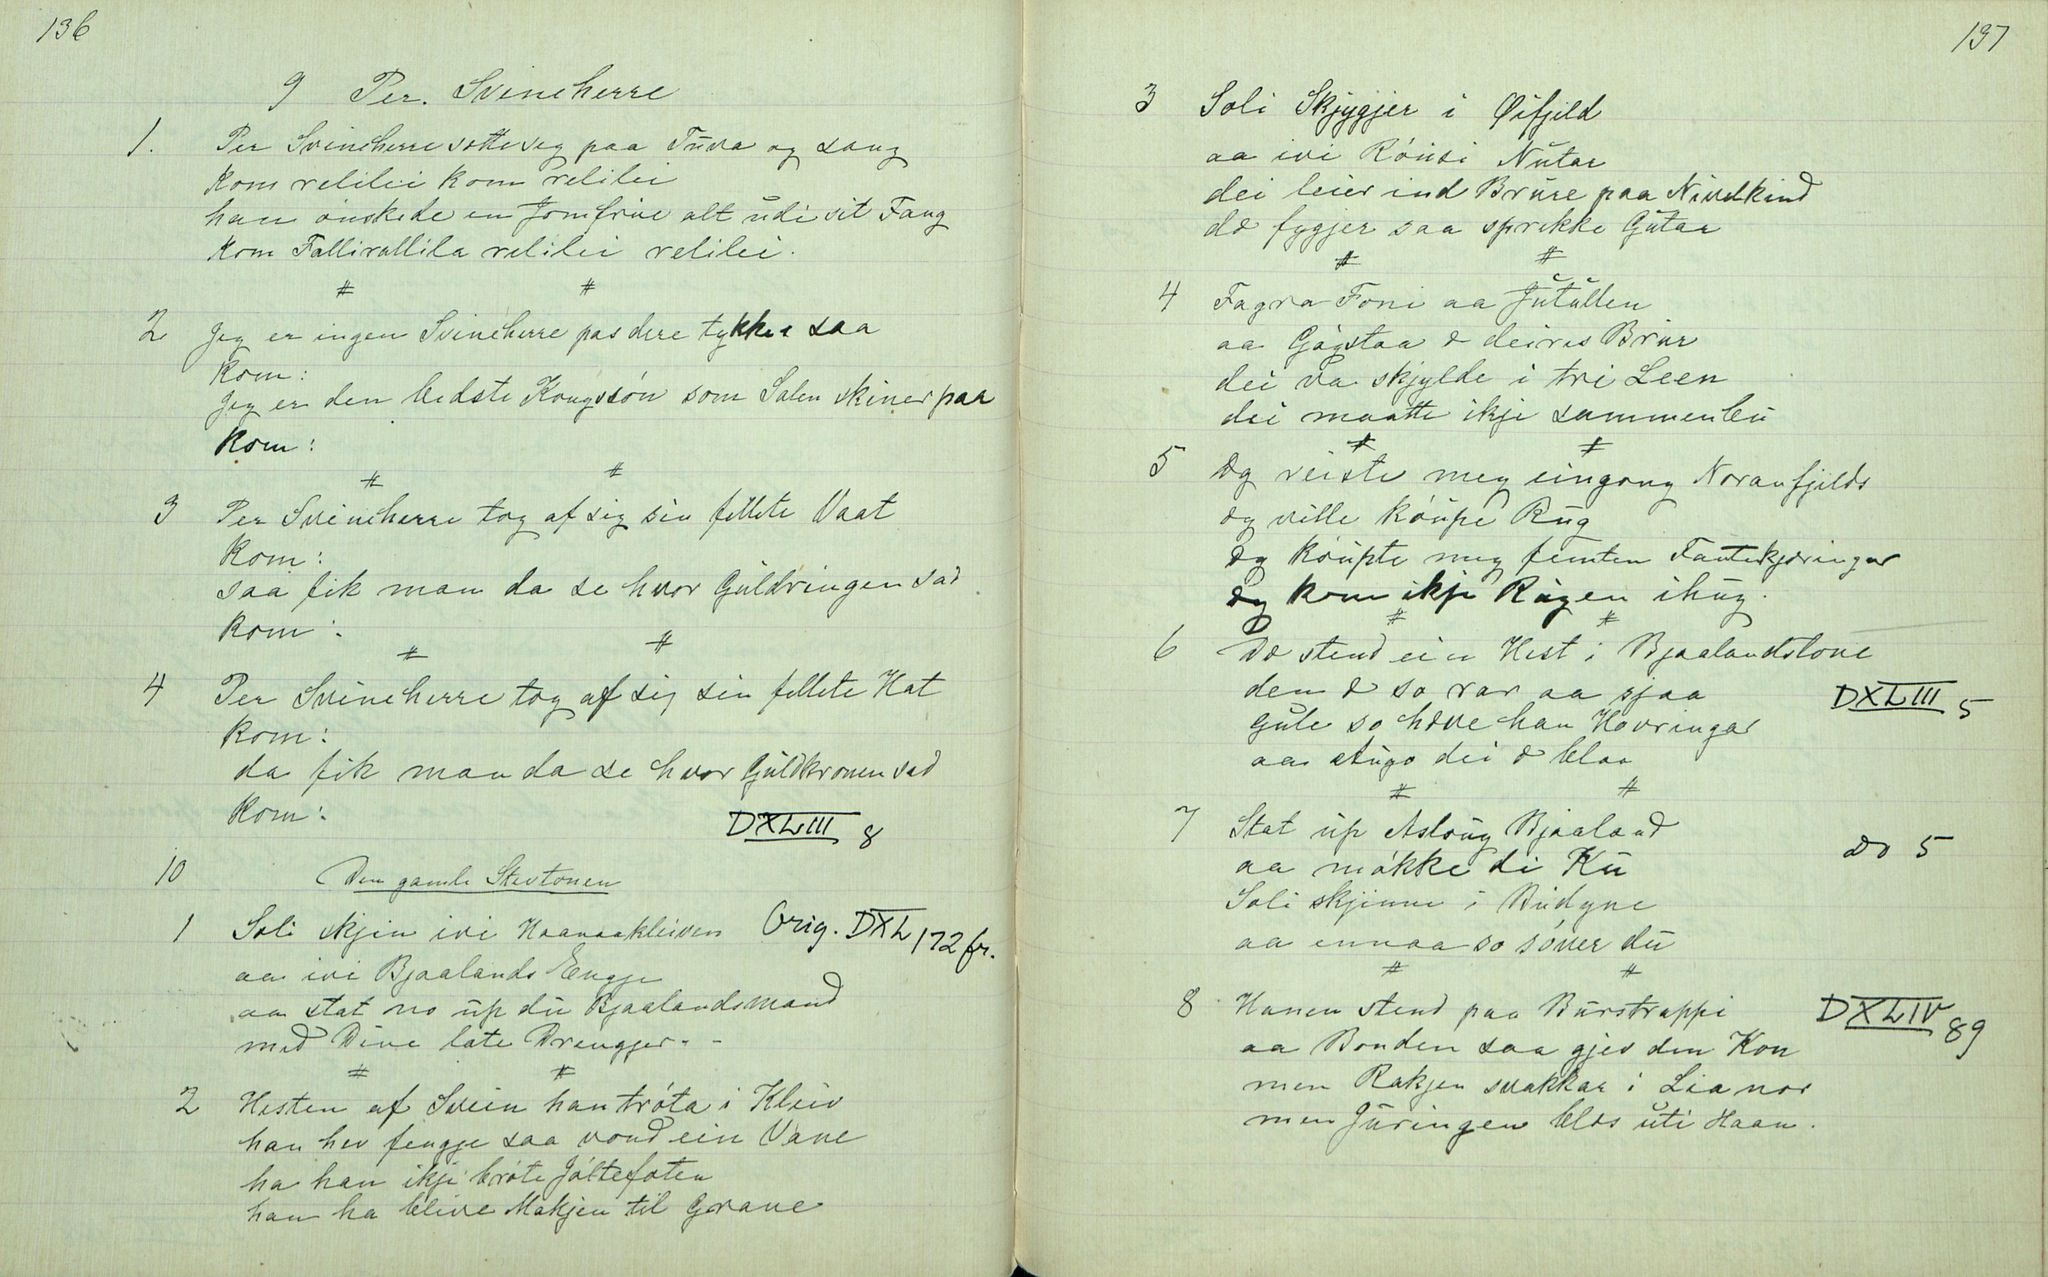 136
9 Per. Svineherre
1. Per Svineherre sette seg paa Tuva og sang
Kom relilei kom relilei
han ónskede en Jomfrue alt udi sit Fang
Kom Fallirallila relilei relilei.
# #
2 Jeg er ingen Svineherre pas dere tykker saa
Kom:
Jeg er den bedste Kongssón som Solen skiner paa
Kom:
# #
3 Per Svineherre tog af sig sin fillete Vaat
Kom:
saa fik man da se hvor Guldringen sad
Kom:
# #
4 Per Svineherre tog af sig sin fillete Hat
Kom:
da fik man da se hvor Guldkronen sad
Kom:
DXLIII 8
10 Den gamle Stevtonen
1 Soli skjin ivi Haanaakleiven Orig. DXL 172 fr.
aa ivi Bjaalands Engje
aa stat no up du Bjaalandsmand
med Dine late Drengjer. -
# #
2 Hesten af Svein han tróta i Kleiv
han hev fengje saa vond ein Vane
ha han ikje bróte Jóltefoten
han ha blive Makjen til Grane
137
3 Soli Skjygjer i Øifjeld
aa ivi Róusi Nutar
dei leier ind Brure paa Nivelkind
dæ fygjer saa sprikke Gutar
# #
4 Fagra Foni aa Jutullen
aa Gógstaa æ deires Brur
dei va skjylde i tri Leen
dei maatte ikje sammenbu
# #
5 Eg reiste meg eingong Noranfjelds
eg ville kóupe Rug
eg kóupte meg femten Fantekjæringar
eg kom ikje Rugen ihug.
# #
6 Dæ stend ein Hest i Bjaalandstone
den æ so rar aa sjaa DXLIII 5
gule so hæve han Hovringar
aa Augo dei æ blaa
# #
7 Stat up Asloug Bjaaland
aa mókke di Ku do 5
Soli skjinne i Budyne
aa ennaa so sóver du
# #
8 Hanen stend paa Burstrappi DXLIV 89
aa Bonden saa gjev den Kon
men Rakjen svakkar i Lia nor
men Juringen blæs uti Haan.